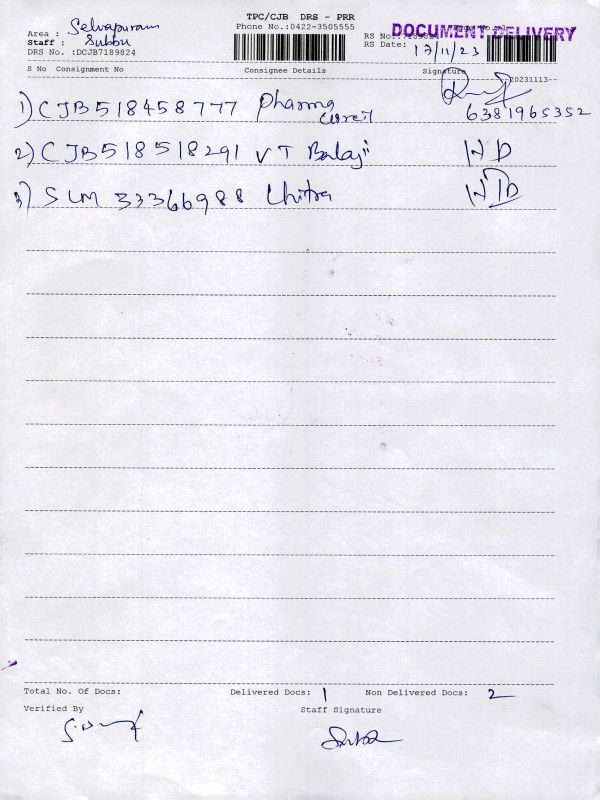 TPC/CJB DRS - PRR
Phone No.:0422-3505555
DOCUMENT DELIVERY
Area : Selvapuram
Staff : Subbu
DRS No. :DCJB7189824
RS No.:
RS Date: 17/11/23
S No Consignment No Consignee Details Signature
20231113--
1) CJB518458777 Pharma
6381965352
2) CJB518518291 VT Balaji ND
3) SLM 33366988 Chitra ND
Total No. Of Docs: Delivered Docs: 1 Non Delivered Docs: 2
Verified By Staff Signature